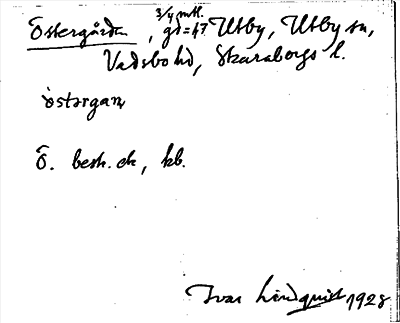 Östergården, 3/4 mtl. gd = 47 Utby, Utby sn,
Vadsbo hd, Skaraborgs l.
östərgaɳ
Ö. besk. ek, kb.
Ivar Lindquist 1928